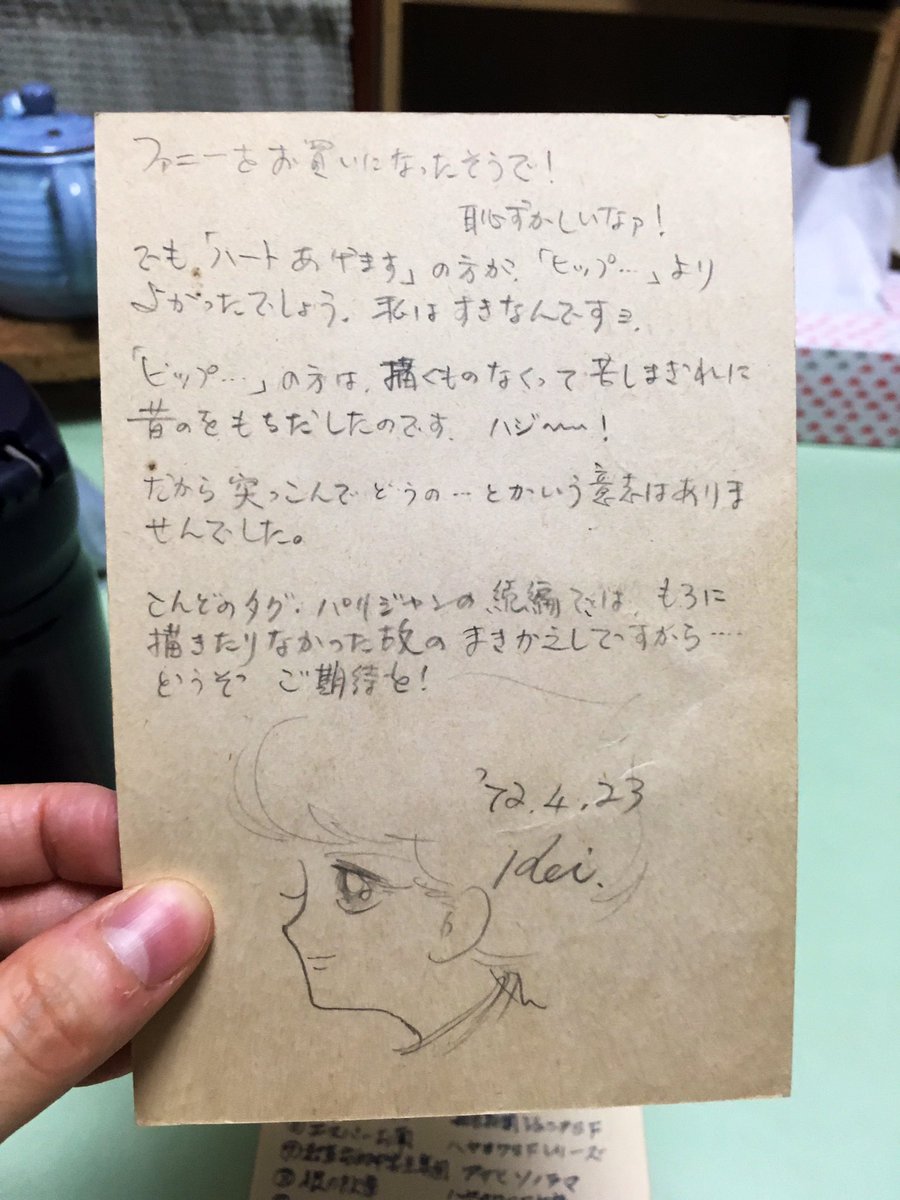 ファニーをお買いになったそうで！
恥ずかしいなァ！
でも「ハートあげます」の方が、「ヒップ…」より
よかったでしょう。私はすきなんですヨ。
「ヒップ…」の方は、描くものなくって苦しまぎれに
昔のをもちだしたのです。ハジ〜〜！
だから突っこんでどうの…とかいう意志はありま
せんでした。
こんどのタグ・パリジャンの続編では、もろに
描きたりなかった故のまきかえしですから‥‥
どうぞ ご期待を！
'72.4.23
Idei.